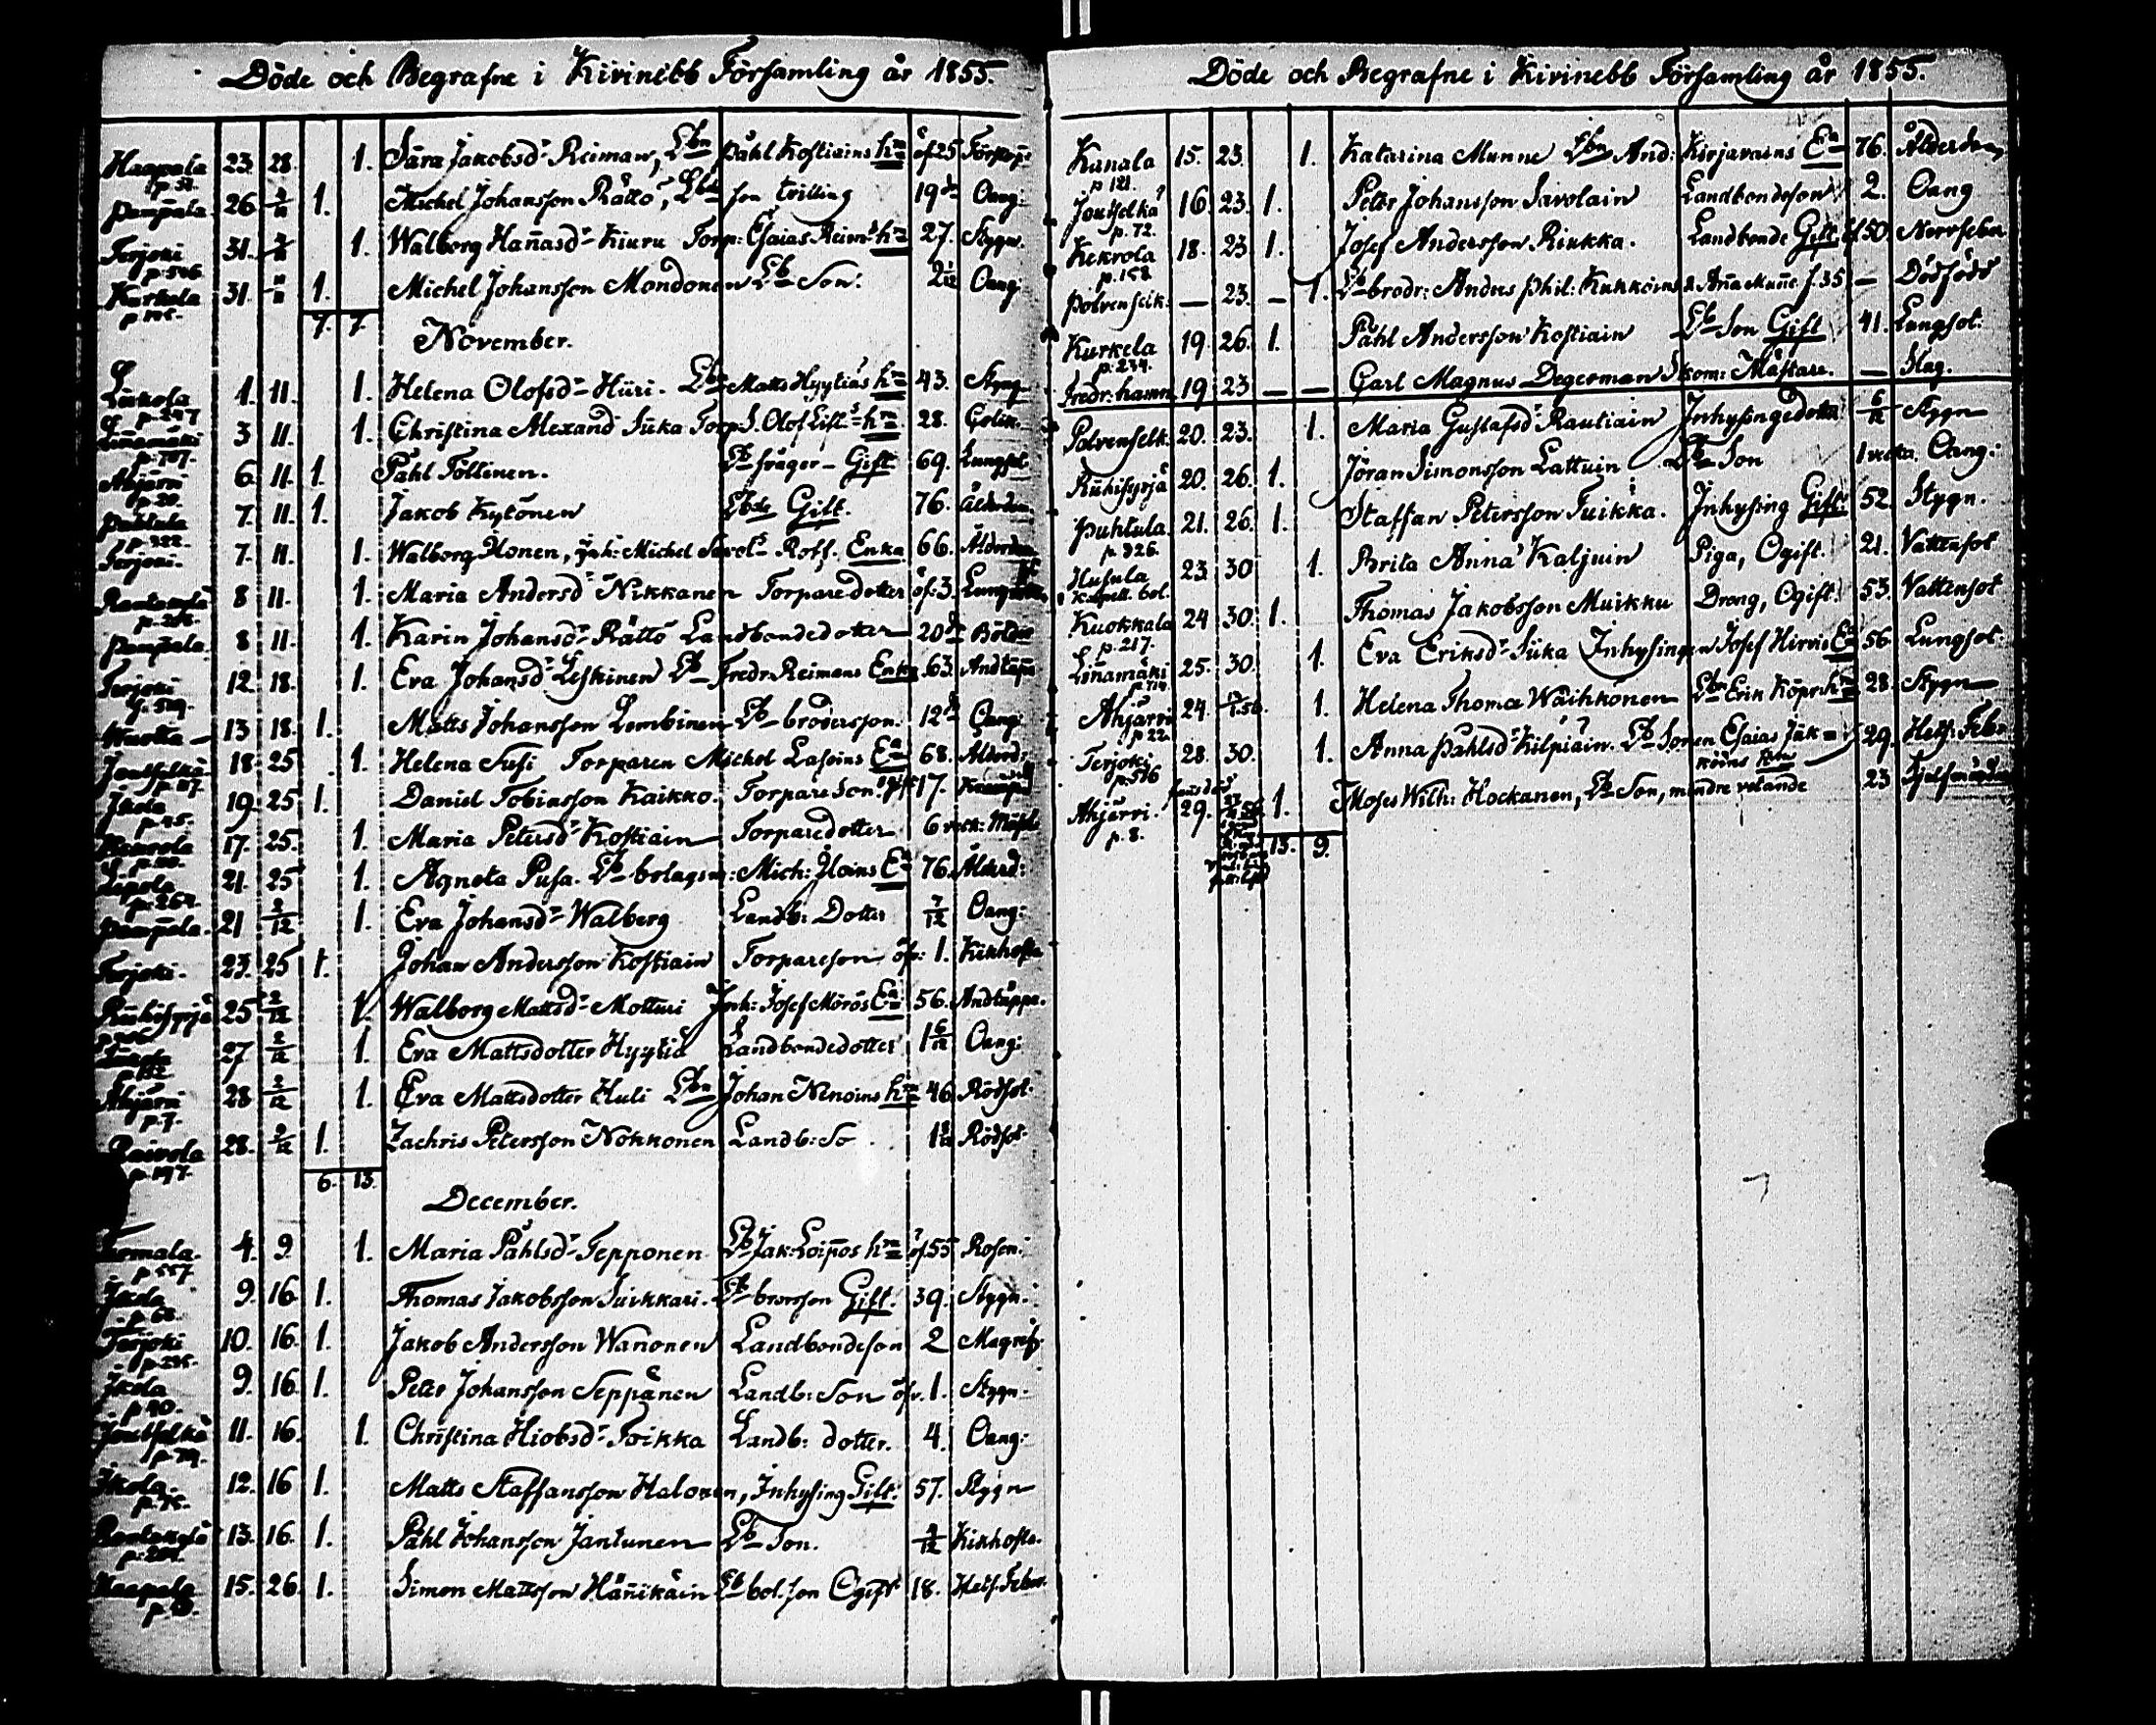 Döde och Begrafne i Kivinebb Församling år 1855.
Haapala 23. 28. 1. Sara Jakobsd:r Reiman, Lbn Påhl Kostiains hm öf 25
Pamppala 26 2/11 1. Michel Johansson Rättö, Lbd son trilling 19 d. Oang:
Terjoki 31. 1. Walborg Hañasd:r Kiuru Torp: Esaias Reim:s hm 27. Stygn.
Kurkela 31. 1. Michel Johansson Mondonen Lb Son. Oang:
7. 7.
November.
Liikola p. 247 1. 11. 1. Helena Olofsd:r Hüri. Lbn Matts Hyytiäs hm 43. Stygn
Liñamäki p. 707. 3 11. 1. Christina Alexand Siika Torp S. Olof hm 28. Colik.
Ahjärvi p. 20. 6. 11. 1. Påhl Töllinen. Lb svåger Gift 69. Lungsot
Puhtula p. 322. 7. 11. 1. Jakob Kytönen Lbde Gift. 76. Ålderdom
Terjoki. 7. 11. 1. Walborg Ilonen, Inh: Michel Enka 66. Ålderdom
8 11. 1. Maria Andersd:r Nikkanen Torparedotter öf: 3.
Pamppala. 8 11. 1. Karin Johansd:r Rättö Landbondedotter 20 d Bölder
Terjoki p. 509. 12. 18. 1. Eva Johansd:r Leskinen Lb Fredr Reimans Enka 63. Andtäppa
13 18. 1. Matts Johansson Lembinen Lb brodersson. 12 d Oang:
Joutselkä p. 87. 18. 25 1. Helena Susi Torparen Michel Lasoins Ea 68. Ålderd:
Ikola p. 45. 19. 25 1. Daniel Tobiasson Kaikko. Torpare Son. 17.
17. 25. 1. Maria Petersd:r Kostiain Torparedotter 6 veck: Mässl
Lipola p. 262 21. 25 1. Agneta Pusa. Lb bolagsm: Mich: Iloins Ea 76. Ålderd:
Pamppala. 21 2/12 1. Eva Johansd:r Walberg Landb: Dotter 7/12 Oang:
Terjoki. 23. 25 1. Johan Andersson Kostiain Torpareson öfv: 1. Kikhosta
Riihisyrjä 25 2/12 1. Walborg Mattsd:r Motturi Inh: Josef Mörös Ea 56. Andtäppa.
27 2/12 1. Eva Mattsdotter Hyytiä Landbondedotter 1 6/12 Oang:
Ahjärvi p. 7. 28 2/12 1. Eva Mattsdotter Huli Lbn Johan Nenoins hm 46 Rödsot
Raivola p. 197. 28. 2/12 1. Zachris Petersson Nokkonen Landb: So Rödsot
6. 13.
December.
p 557. 4. 9. 1. Maria Påhlsd:r Tepponen Lb Jak: Loippos hm öf. 55 Rosen:
Ikola p. 62. 9. 16. 1. Thomas Jakobsson Suikkari. Lb brorson Gift. 39. Stygn.
Terjoki 10. 16. 1. Jakob Andersson Wanonen Landbondeson 2 Magref:
Ikola p. 40. 9. 16. 1. Peter Johansson Seppänen Landb: Son öfv. 1. Stygn.
Joutselkä p. 79. 11. 16. 1. Christina Hiobsd:r Toikka Landb: dotter. 4. Oang:
Ikola. 12. 16 1. Matts Staffansson Halonen, Inhysing Gift. 57. Stygn
Rantakylä 13. 16. 1. Påhl Johansson Jantunen Lb Son. Kikhosta.
Haapala 15. 26. 1. Simon Mattsson Häñikäin Lb bol. son Ogift 18. Hets. Feber.
Döde och Begrafne i Kivinebb Församling år 1855.
Kanala p 121. 15. 23. 1. Katarina Munne Lbn And: Kirjavains Ea 76. Ålderdom
Joutselkä p. 72. 16. 23. 1. Peter Johansson Savolain Landbondeson 2. Oang
Kekrola p. 158. 18. 23 1. Josef Andersson Rinkka. Landbonde Gift. öf 50. Nervfeber
Polvenselk: — 23. — 1. Lb brodr: Anders Phil: Kukkoins & Aña Muñe f. 35 — Dödfödd
Kurkela p. 234. 19. 26. 1. Påhl Andersson Kostiain Lb Son Gift 41. Lungsot.
Fredr: hamn. 19 23 — — Carl Magnus Degerman Skom: Mästare. — Slag.
Polvenselk. 20. 23. 1. Maria Gustafsd:r Rautiain Inhysingedotter 6/12 Stygn
Riihisyrjä 20. 26. 1. Jöran Simonsson Lattuin Lb Son 1 vecka. Oang:
Puhtula. p. 326. 21. 26. 1. Staffan Petersson Tuikka. Inhysing Gift. 52. Stygn.
Husula Kapell. bol. 23. 30 1. Brita Anna Kaljuin Piga, Ogift. 21. Vattensot
Kuokkala p. 217. 24 30. 1. Thomas Jakobsson Muikku Dreng, Ogift. 53. Vattensot
Liñamäki p. 714. 25. 30. 1. Eva Eriksd:r Siika Inhysingen Josef Hirvis Ea 56 Lungsot.
Ahjärvi p. 22. 24. 1. Helena Thomæ Wäihkönen Lbn Erik Köpri hm 28. Stygn
Terjoki p. 516 28. 30. 1. Anna Påhlsd:r Kilpiäin. Lb Sonen Esaias Jäk= köins hm 29. Hets: Feber
Ahjärvi. p. 8. 29. 1. Moses Wilh: Hockanen, Lb Son, mindre vetande 23 Sjelfmördare
13. 9.